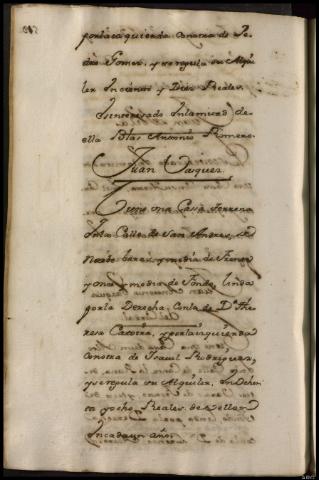 por la izquierda con otra de Pe-
dro Gomez, y se regula su Alqui-
ler In ciento y Diez Reales.
Es interesado In la mitad de
ella Blas Antonio Romero.
Juan Vasquez.
Tiene una Cassa Terrena
In la Calle de San Andres,
Nuebe baras y media de Frente
y onze y media de Fondo, linda
por la Derecha, con la de Dª The-
resa Caxorra, y por la izquierda
con otra de Isauel Rodriguez,
y se regula su Alquiler, In Ochen-
ta y ocho Reales de vellon
In cada un año.